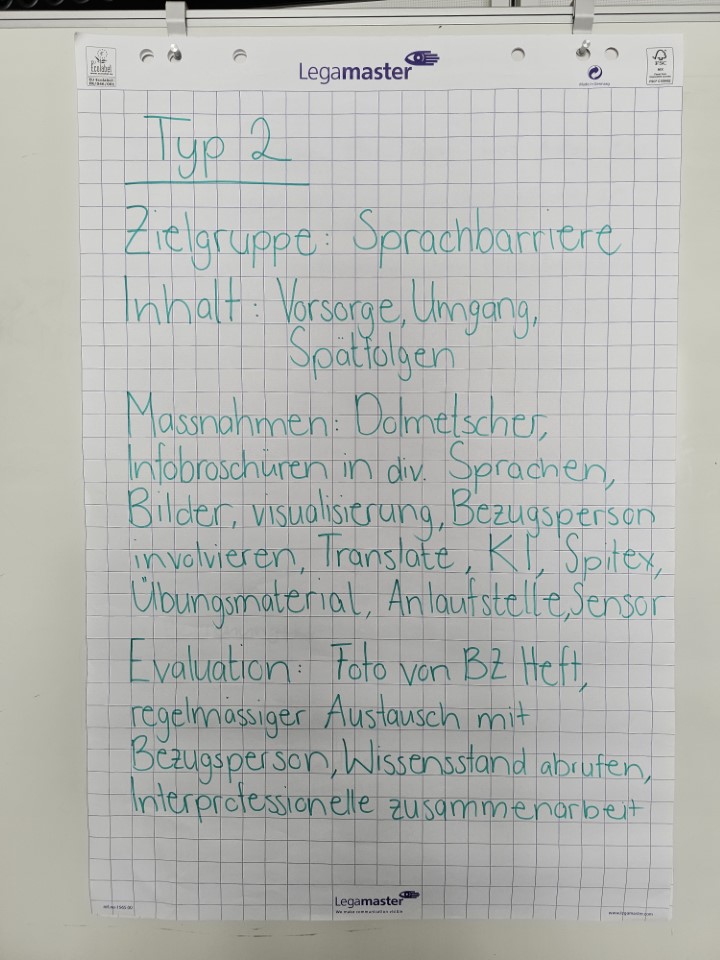 Legamaster
Typ 2
Zielgruppe: Sprachbarriere
Inhalt: Vorsorge, Umgang,
Spätfolgen
Massnahmen: Dolmetscher,
Infobroschüren in div. Sprachen,
Bilder, visualisierung, Bezugsperson
involvieren, Translate, KI, Spitex,
Übungsmaterial, Anlaufstelle, Sensor
Evaluation: Foto von BZ Heft,
regelmässiger Austausch mit
Bezugsperson, Wissensstand abrufen,
Interprofessionelle zusammenarbeit
Legamaster
We make communication visible
www.legamaster.com